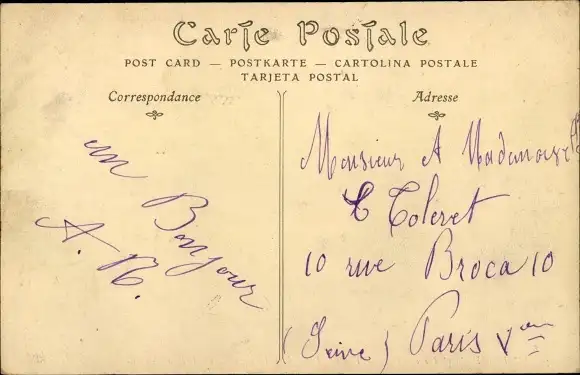 Carte Postale
POST CARD — POSTKARTE — CARTOLINA POSTALE
TARJETA POSTAL
Correspondance
un Bonjour
A. R.
Adresse
Monsieur A Mademoiselle
C Toleret
10 rue Broca 10
(Seine) Paris Vem